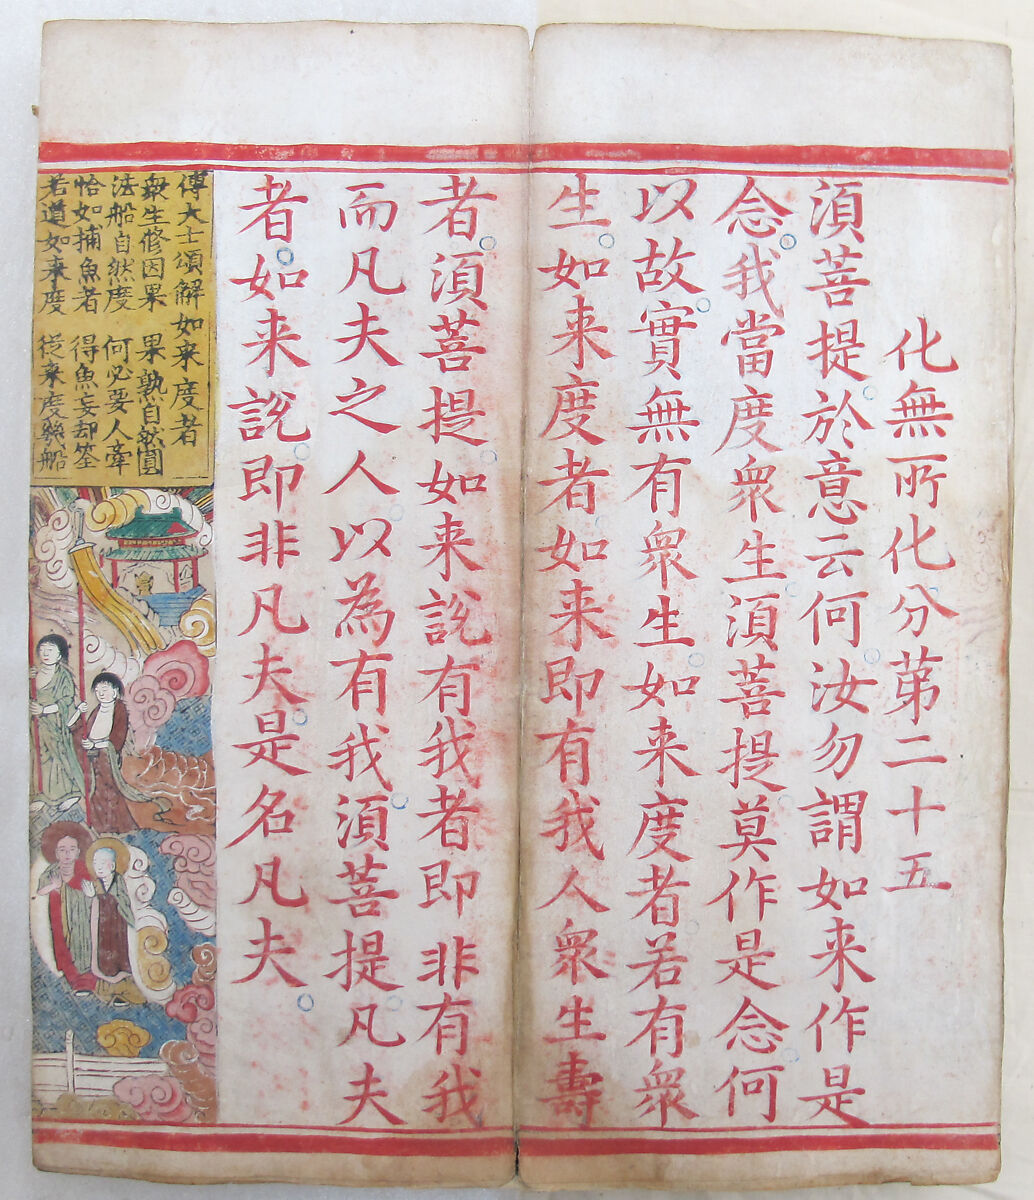 化無所化分第二十五
須菩提於意云何汝勿謂如来作是
念我當度衆生須菩提莫作是念何
以故實無有衆生如来度者若有衆
生如来度者如来即有我人衆生壽
者須菩提如来説有我者即非有我
而凡夫之人以為有我須菩提凡夫
者如来説即非凡夫是名凡夫
傅大士頌解如来度者
衆生修因果 果熟自然圓
法船自然度 何必要人牽
恰如捕魚者 得魚妄却筌
若道如来度 従来度幾船